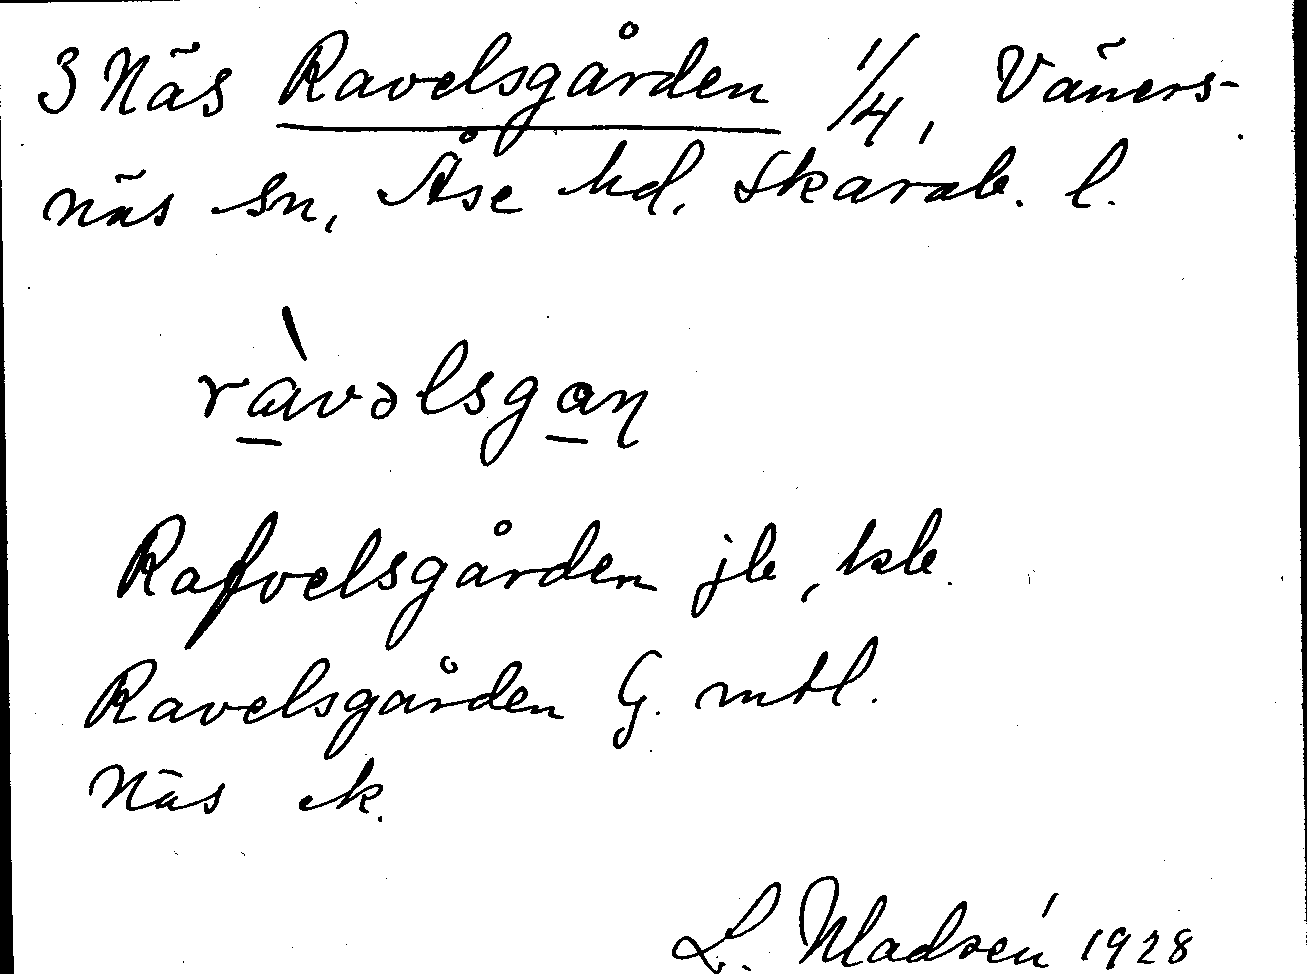 3 Näs Ravelsgården 1/4, Väners-
näs sn, Åse hd, Skarab. l.
ràvəlsgaɳ
Rafvelsgården jb, kb
Ravelsgården G. mtl.
Näs ek.
L. Madsén 1928